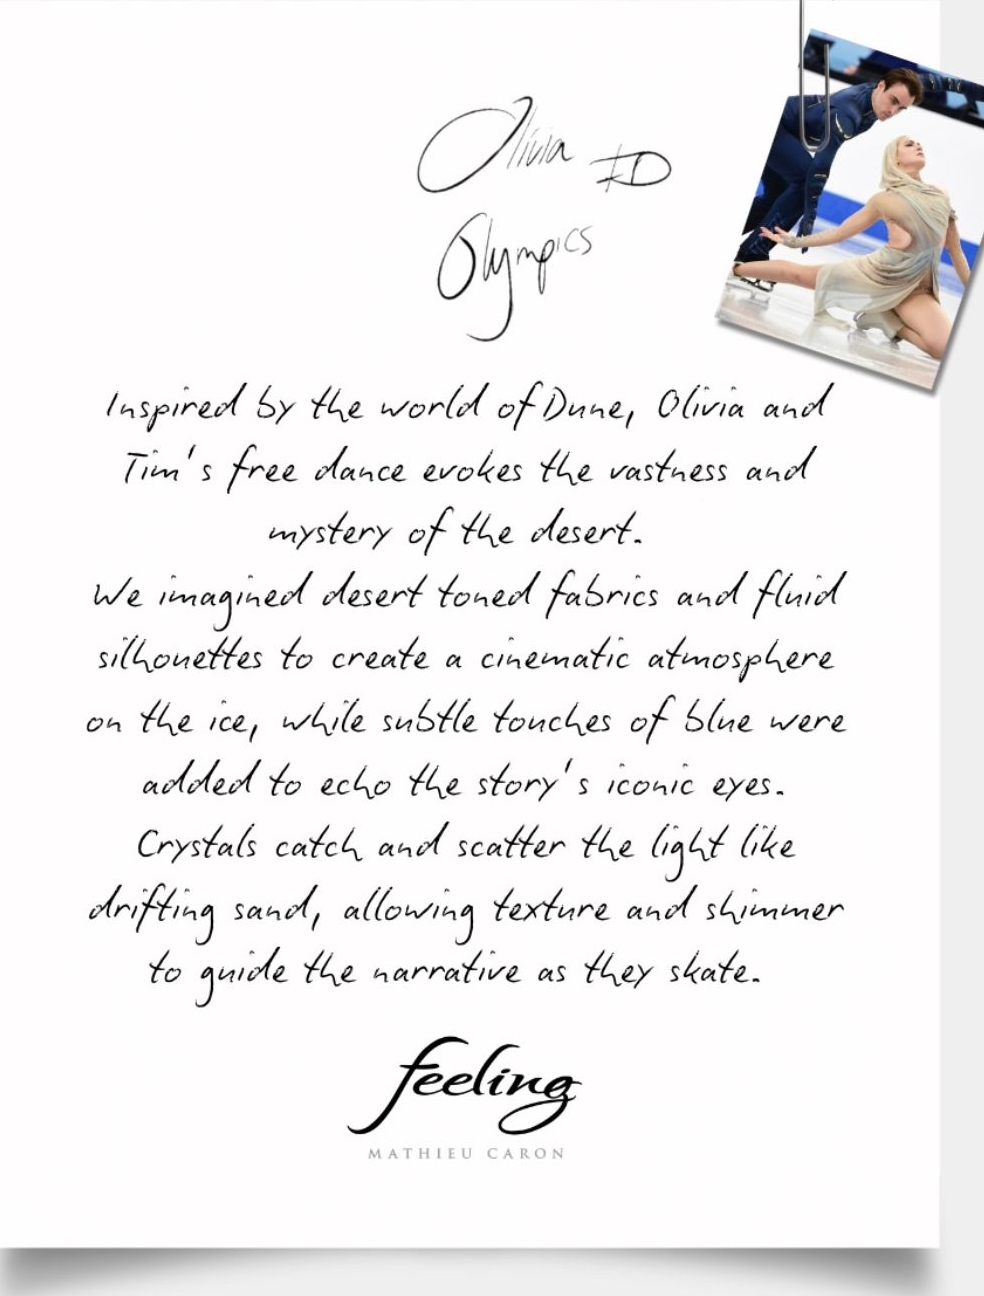 Olivia FD
Olympics
Inspired by the world of Dune, Olivia and
Tim's free dance evokes the vastness and
mystery of the desert.
We imagined desert toned fabrics and fluid
silhouettes to create a cinematic atmosphere
on the ice, while subtle touches of blue were
added to echo the story's iconic eyes.
Crystals catch and scatter the light like
drifting sand, allowing texture and shimmer
to guide the narrative as they skate.
feeling
MATHIEU CARON